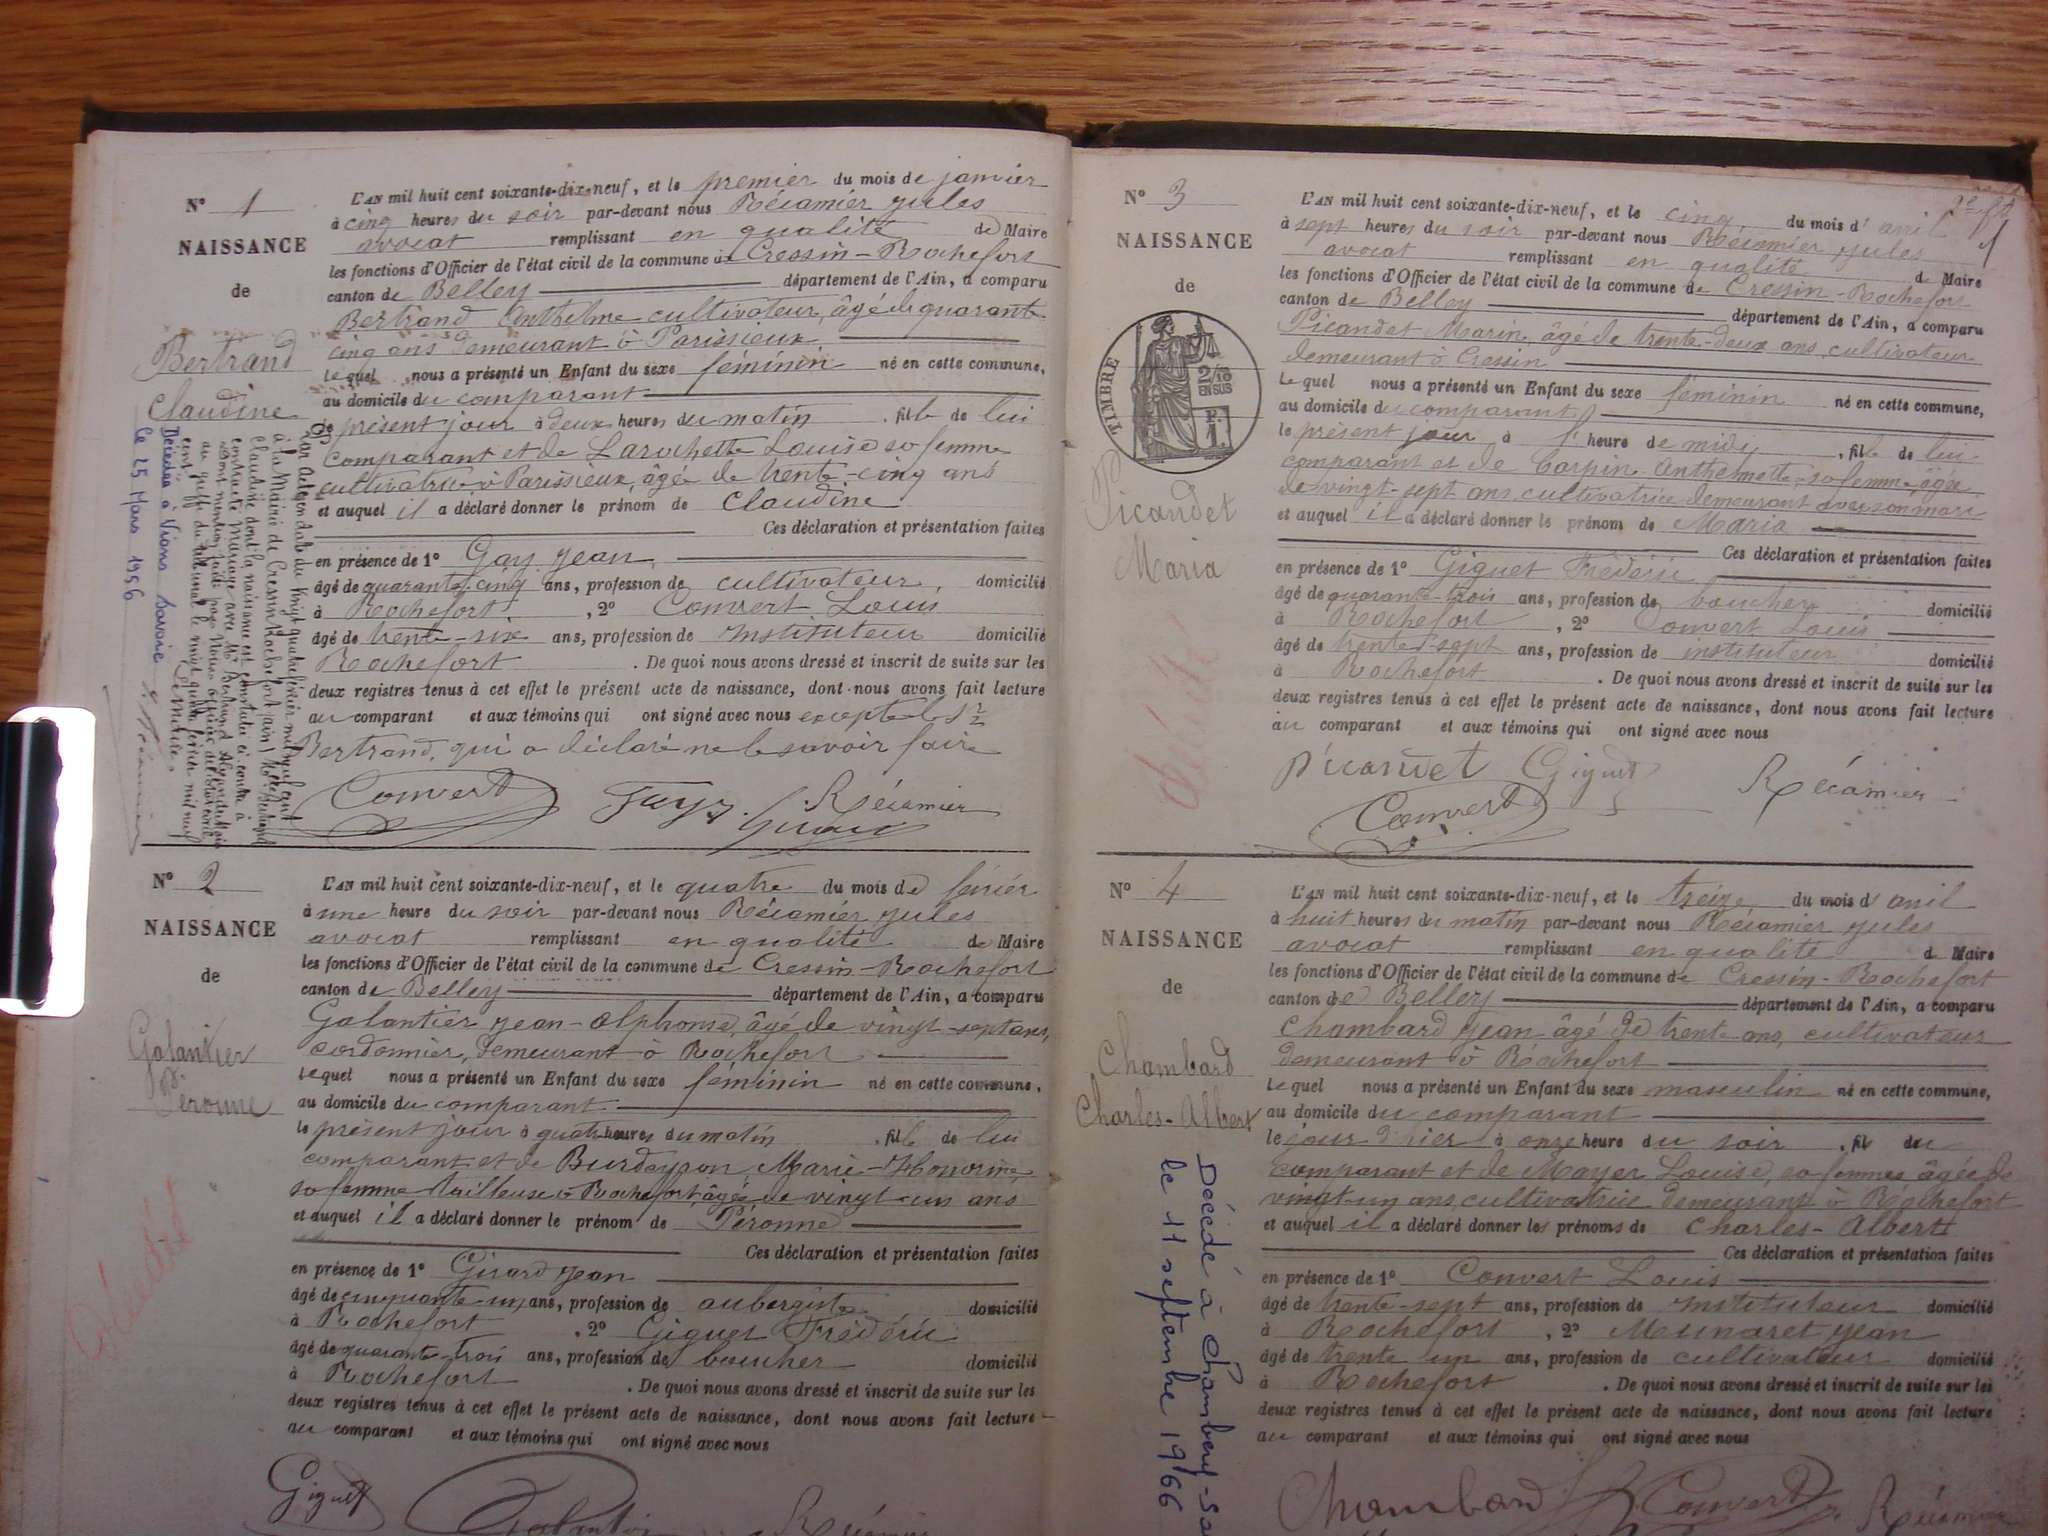 N° 1
NAISSANCE
de
Bertrand
Claudine
L'AN mil huit cent soixante-dix-neuf, et le premier du mois de janvier
à cinq heures du soir par-devant nous Récamier Jules
avocat remplissant en qualité de Maire
les fonctions d'Officier de l'état civil de la commune de Cressin-Rochefort
canton de Belley département de l'Ain, a comparu
Bertrand Anthelme cultivateur, âgé de quarante
cinq ans demeurant à Parissieux.
Lequel nous a présenté un Enfant du sexe féminin né en cette commune,
au domicile du comparant
le présent jour à deux heures du matin , fille de lui
comparant et de Larochette Louise sa femme
cultivatrice à Parissieux, âgée de trente-cinq ans
et auquel il a déclaré donner le prénom de Claudine
Ces déclaration et présentation faites
en présence de 1° Gay Jean
âgé de quarante-cinq ans, profession de cultivateur, domicilié
à Rochefort , 2° Convert Louis
âgé de trente-six ans, profession de Instituteur domicilié
Rochefort . De quoi nous avons dressé et inscrit de suite sur les
deux registres tenus à cet effet le présent acte de naissance, dont nous avons fait lecture
au comparant et aux témoins qui ont signé avec nous excepté le Sr
Bertrand, qui a déclaré ne le savoir faire
Convert Récamier
Décédée à Vions Savoie
le 25 Mars 1956
N° 2
NAISSANCE
de
Galantier
Péronne
L'AN mil huit cent soixante-dix-neuf, et le quatre du mois de février
à une heure du soir par-devant nous Récamier Jules
avocat remplissant en qualité de Maire
les fonctions d'Officier de l'état civil de la commune de Cressin-Rochefort
canton de Belley département de l'Ain, a comparu
Galantier Jean-Alphonse, âgé de vingt-sept ans,
cordonnier, demeurant à Rochefort
Lequel nous a présenté un Enfant du sexe féminin né en cette commune,
au domicile du comparant
le présent jour à quatre heures du matin , fille de lui
comparant et de Burdeyron Marie-Honorine,
sa femme tailleuse à Rochefort, âgée de vingt-un ans
et auquel il a déclaré donner le prénom de Péronne
Ces déclaration et présentation faites
en présence de 1° Girard Jean
âgé de cinquante-un ans, profession de aubergiste domicilié
à Rochefort , 2° Giguet Frédéric
âgé de quarante-trois ans, profession de boucher domicilié
à Rochefort . De quoi nous avons dressé et inscrit de suite sur les
deux registres tenus à cet effet le présent acte de naissance, dont nous avons fait lecture
au comparant et aux témoins qui ont signé avec nous
Giguet Galantier Récamier
N° 3
NAISSANCE
de
TIMBRE
2/10
EN SUS
Picandet
Maria
L'AN mil huit cent soixante-dix-neuf, et le cinq du mois d'avril
à sept heures du soir par-devant nous Récamier Jules
avocat remplissant en qualité de Maire
les fonctions d'Officier de l'état civil de la commune de Cressin-Rochefort
canton de Belley département de l'Ain, a comparu
Picandet Marin, âgé de trente-deux ans, cultivateur
demeurant à Cressin
Lequel nous a présenté un Enfant du sexe féminin né en cette commune,
au domicile du comparant
le présent jour à heure de midi , fille de lui
comparant et de Carpin Anthelmette sa femme, âgée
de vingt-sept ans, cultivatrice demeurant avec son mari
et auquel il a déclaré donner le prénom de Maria
Ces déclaration et présentation faites
en présence de 1° Giguet Frédéric
âgé de quarante-trois ans, profession de boucher domicilié
à Rochefort , 2° Convert Louis
âgé de trente-sept ans, profession de instituteur domicilié
à Rochefort . De quoi nous avons dressé et inscrit de suite sur les
deux registres tenus à cet effet le présent acte de naissance, dont nous avons fait lecture
au comparant et aux témoins qui ont signé avec nous
Picandet Giguet Récamier
Convert
N° 4
NAISSANCE
de
Chambard
Charles-Albert
L'AN mil huit cent soixante-dix-neuf, et le treize du mois d'avril
à huit heures du matin par-devant nous Récamier Jules
avocat remplissant en qualité de Maire
les fonctions d'Officier de l'état civil de la commune de Cressin-Rochefort
canton de Belley département de l'Ain, a comparu
Chambard Jean âgé de trente ans, cultivateur
demeurant à Rochefort
Lequel nous a présenté un Enfant du sexe masculin né en cette commune,
au domicile du comparant
le jour d'hier à onze heure du soir , fil du
comparant et de Mayer Louise, sa femme, âgée de
vingt-un ans, cultivatrice demeurant à Rochefort
et auquel il a déclaré donner les prénoms de Charles-Albert
Ces déclaration et présentation faites
en présence de 1° Convert Louis
âgé de trente-sept ans, profession de Instituteur domicilié
à Rochefort , 2° Munaret Jean
âgé de trente un ans, profession de cultivateur domicilié
à Rochefort . De quoi nous avons dressé et inscrit de suite sur les
deux registres tenus à cet effet le présent acte de naissance, dont nous avons fait lecture
au comparant et aux témoins qui ont signé avec nous
Chambard Convert Récamier
Décédé à Chambéry-Sa
le 11 septembre 1966